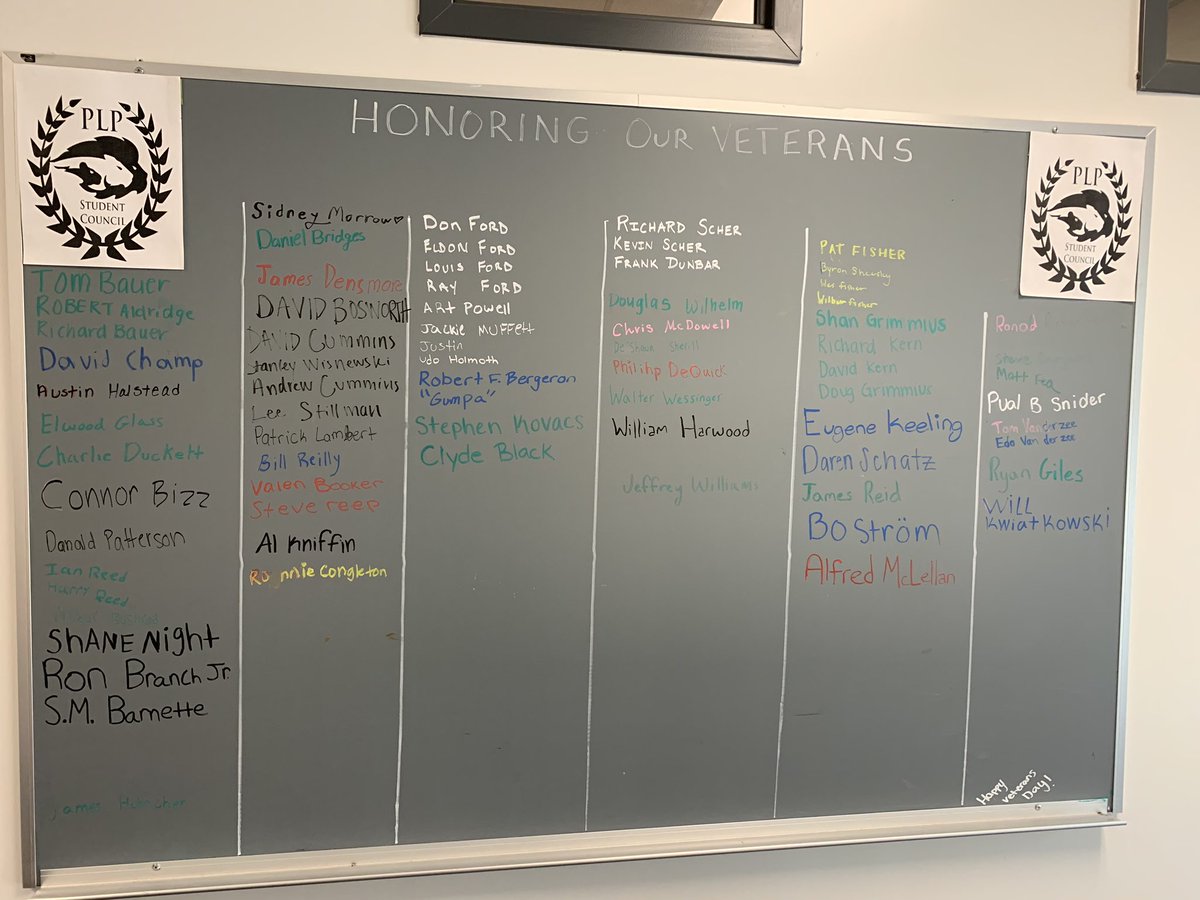 HONORING OUR VETERANS
PLP
STUDENT
COUNCIL
Tom Bauer
ROBERT Aldridge
Richard Bauer
David Champ
Austin Halstead
Elwood Glass
Charlie Duckett
Connor Bizz
Danald Patterson
Ian Reed
Harry Reed
ShANE Night
Ron Branch Jr.
S.M. Barnette
James
Sidney Morrow
Daniel Bridges
James Densmore
DAVID BOSWORTH
DAVID Cummins
Stanley Wisnewski
Andrew Cummins
Lee Stillman
Patrick Lambert
Bill Reilly
Valen Booker
Steve reep
Al Kniffin
Ronnie Congleton
DON FORD
ELDON FORD
LOUIS FORD
RAY FORD
ART POWELL
JACKIE MUFFETT
Justin
Udo Holmoth
Robert F. Bergeron
"Gumpa"
Stephen Kovacs
Clyde Black
RICHARD SCHER
KEVIN SCHER
FRANK DUNBAR
Douglas Wilhelm
Chris McDowell
De'Shaun Sherill
Philihp DeQuick
Walter Wessinger
William Harwood
Jeffrey Williams
PAT FISHER
Byron
Wes Fisher
Wilburn Fisher
Shan Grimmius
Richard Kern
David Kern
Doug Grimmius
Eugene Keeling
Daren Schatz
James Reid
Bo Ström
Alfred McLellan
PLP
STUDENT
COUNCIL
Ronod
Matt
Pual B Snider
Tom Vanderzee
Edo Van der zee
Ryan Giles
Will
Kwiatkowski
Happy
veterans
Day!